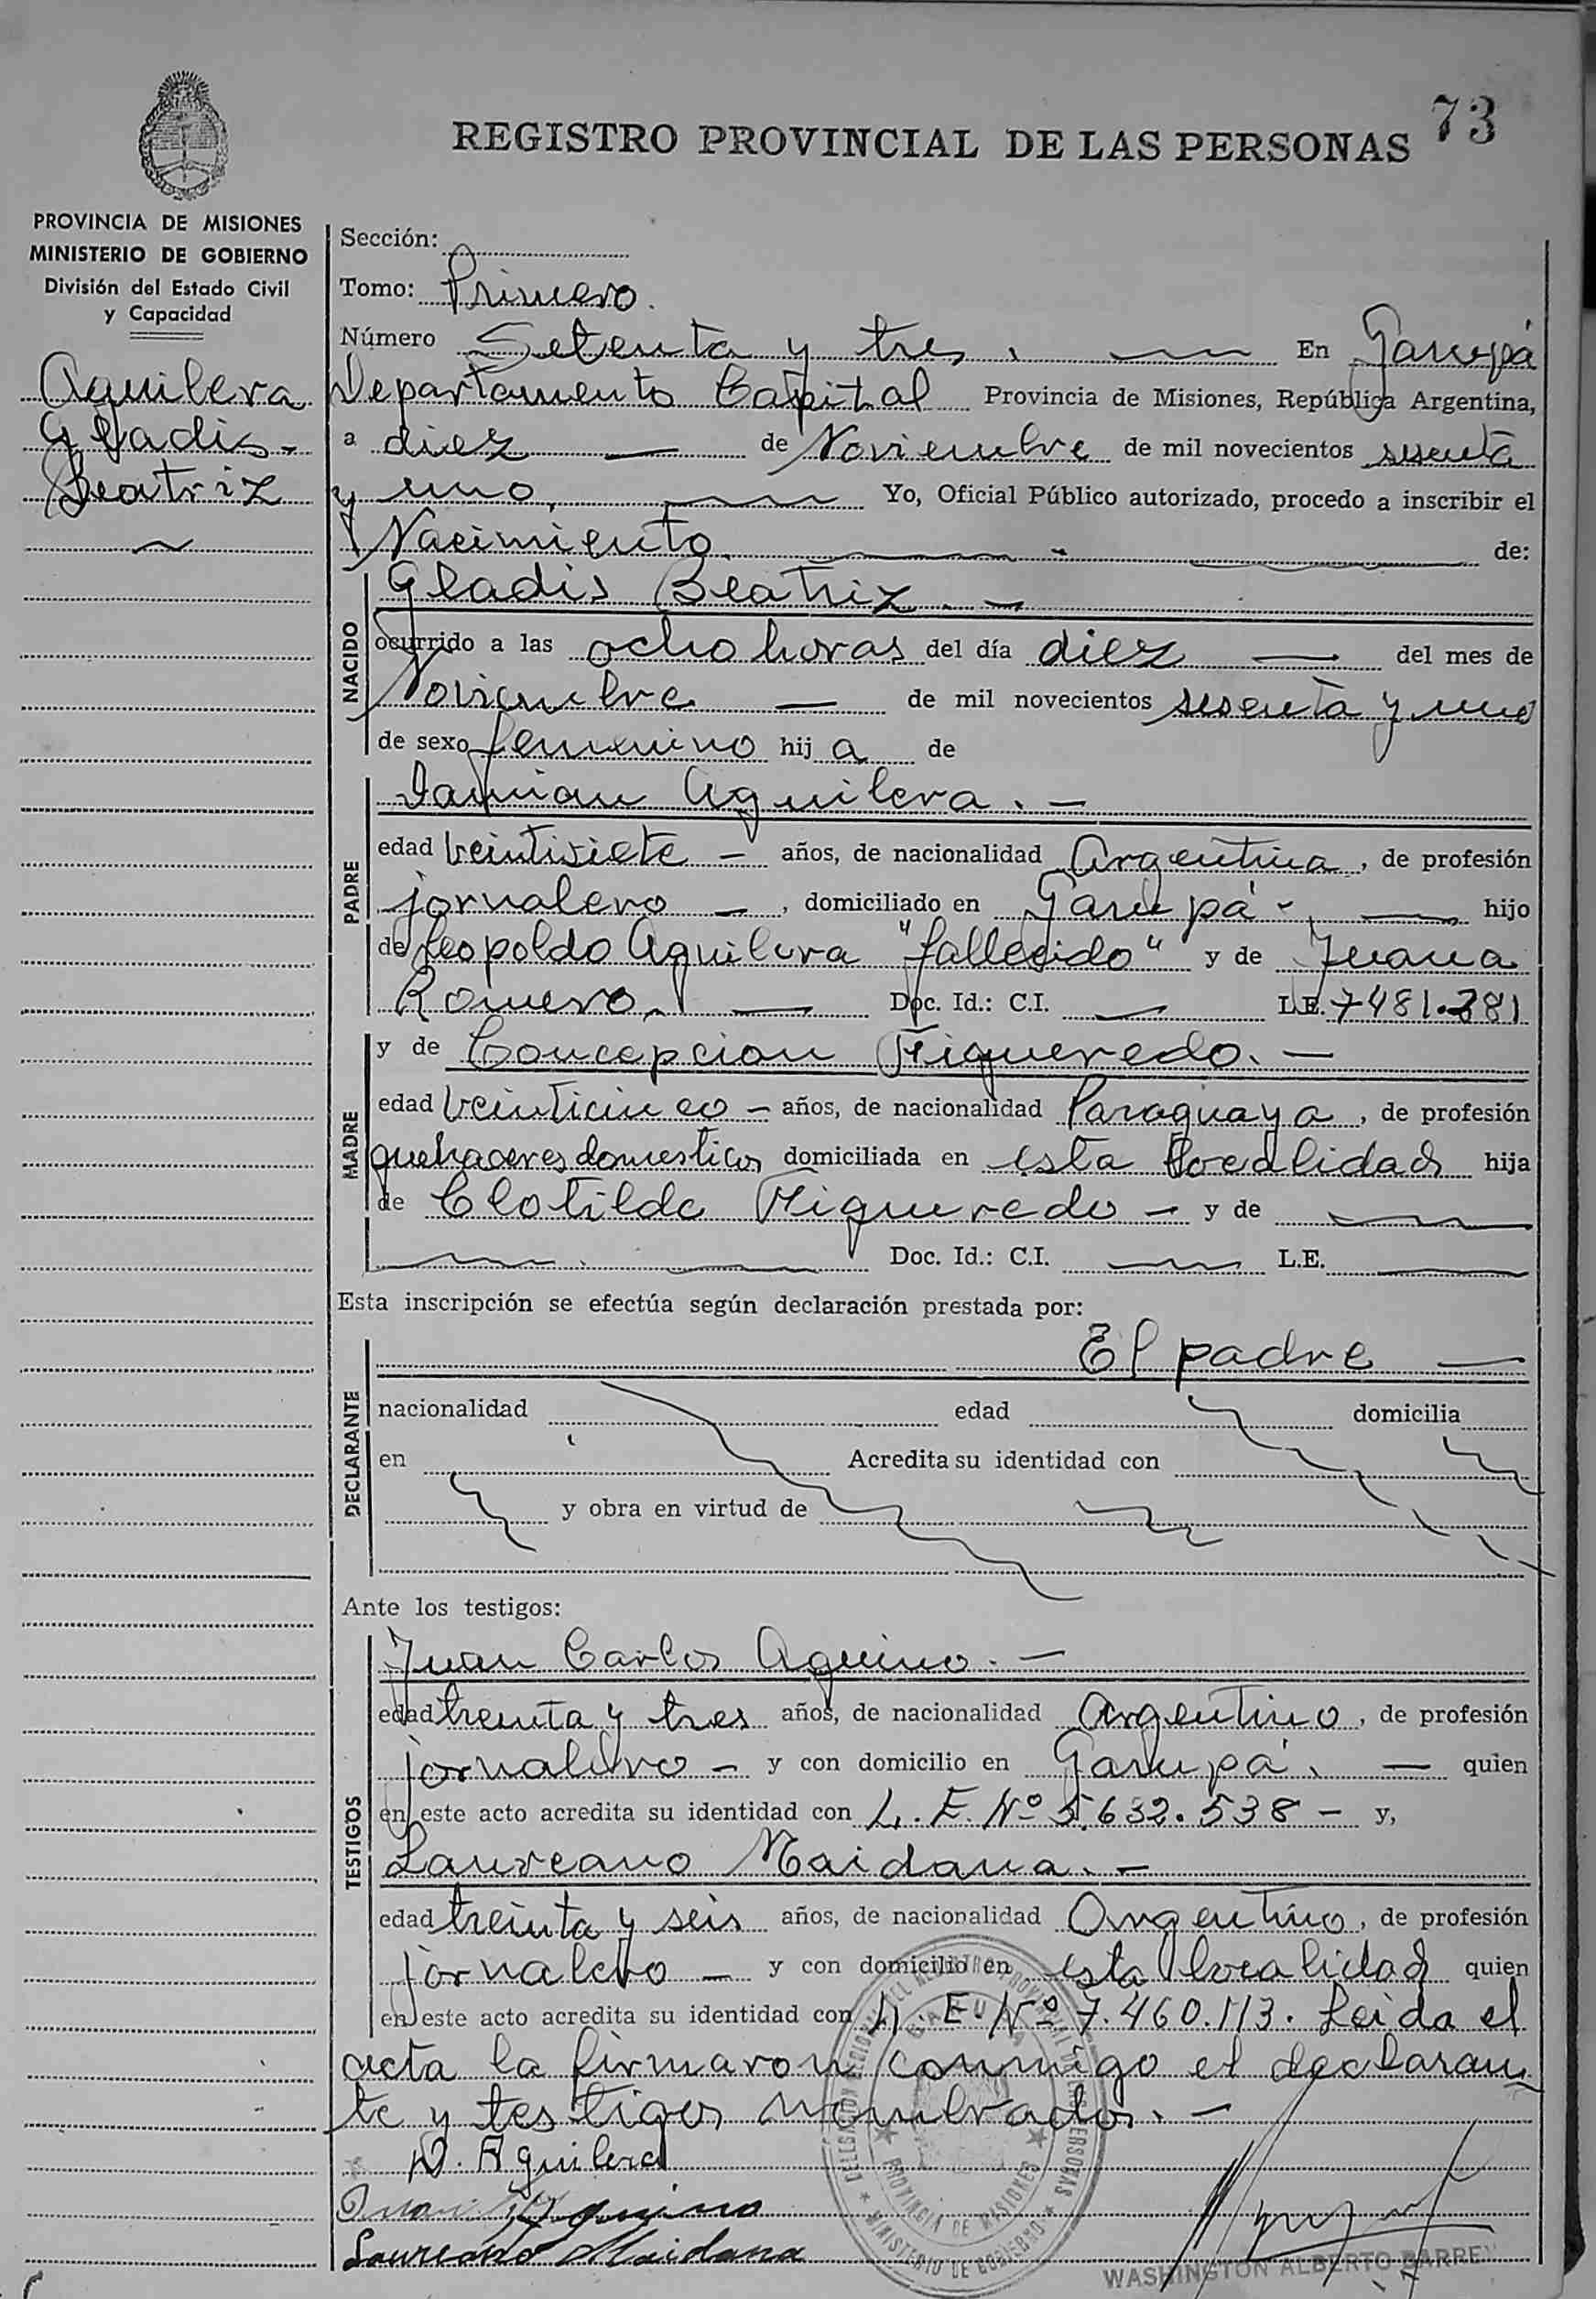 73
REGISTRO PROVINCIAL DE LAS PERSONAS
PROVINCIA DE MISIONES
MINISTERIO DE GOBIERNO
División del Estado Civil
y Capacidad
Aguilera
Gladis
Beatriz
Sección:
Tomo: Primero.
Número Setenta y tres. En Garupá
Departamento Capital Provincia de Misiones, República Argentina,
a diez de Noviembre de mil novecientos sesenta
y uno. Yo, Oficial Público autorizado, procedo a inscribir el
Nacimiento. de:
NACIDO
Gladis Beatriz. -
ocurrido a las ocho horas del día diez del mes de
Noviembre de mil novecientos sesenta y uno
de sexo femenino hij a de
PADRE
Damian Aguilera. -
edad veintisiete - años, de nacionalidad Argentina, de profesión
jornalero -, domiciliado en Garupá - hijo
de Leopoldo Aguilera "fallecido" y de Juana
Romero. Doc. Id.: C.I. L.E. 7481.281
MADRE
y de Concepcion Figueredo. -
edad veinticinco - años, de nacionalidad Paraguaya, de profesión
quehaceres domesticos domiciliada en esta localidad hija
de Clotilde Figueredo - y de
Doc. Id.: C.I. L.E.
Esta inscripción se efectúa según declaración prestada por:
DECLARANTE
El padre
nacionalidad edad domicilia
en Acredita su identidad con
y obra en virtud de
Ante los testigos:
TESTIGOS
Juan Carlos Aquino. -
edad treinta y tres años, de nacionalidad Argentino, de profesión
jornalero - y con domicilio en Garupá. quien
en este acto acredita su identidad con L.E. Nº 5.632.538 - y,
Laureano Maidana. -
edad treinta y seis años, de nacionalidad Argentino, de profesión
jornalero - y con domicilio en esta localidad quien
en este acto acredita su identidad con L.E. Nº 7.460.113. Leida el
acta la firmaron conmigo el declaran
te y testigos nombrados. -
D. Aguilera
Juan C Aquino
Laureano Maidana
DELEGACION REGIONAL DEL REGISTRO PROVINCIAL DE LAS PERSONAS
GARUPA
PROVINCIA DE MISIONES
MINISTERIO DE GOBIERNO
WASHINGTON ALBERTO